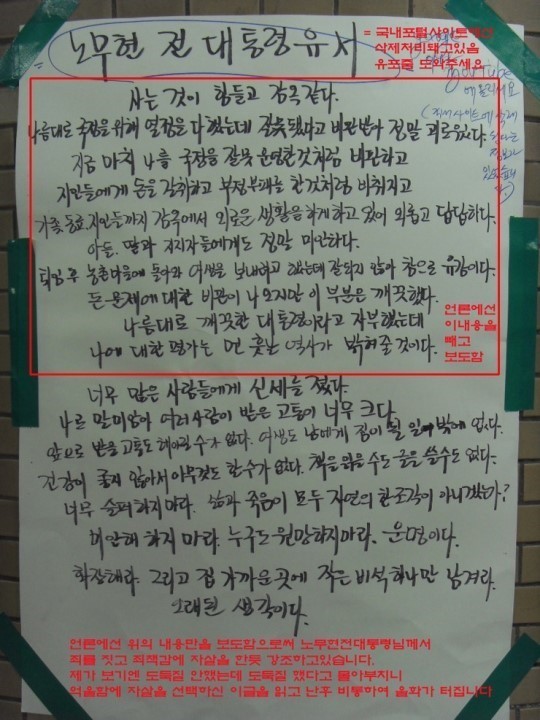 노무현 전 대통령 유서
= 국내포털사이트에선
삭제처리돼고있음
유포좀 도와주세요
youTube
에 올리세요
사는 것이 힘들고 감옥같다.
나름대로 국정을 위해 열정을 다했는데 잘못됐다고 비판받아 정말 괴로웠다.
지금 마치 나를 국정을 잘못 운영한것처럼 비판하고
지인들에게 돈을 갈취하고 부정부패를 한것처럼 비춰지고
가족 동료, 지인들까지 감옥에서 외로운 생활을 하게 하고 있어 외롭고 답답하다.
아들, 딸과 지지자들에게도 정말 미안하다.
퇴임 후 농촌마을에 돌아와 여생을 보내려고 했는데 잘 되지 않아 참으로 유감이다.
돈 문제에 대한 비판이 나오지만 이 부분은 깨끗했다.
나름대로 깨끗한 대통령이라고 자부했는데
나에 대한 평가는 먼 훗날 역사가 밝혀줄 것이다.
언론에선
이내용을
빼고
보도함
너무 많은 사람들에게 신세를 졌다.
나로 말미암아 여러 사람이 받은 고통이 너무 크다.
앞으로 받을 고통도 헤아릴 수가 없다. 여생도 남에게 짐이 될 일 밖에 없다.
건강이 좋지 않아서 아무것도 할 수가 없다. 책을 읽을 수도 글을 쓸 수도 없다.
너무 슬퍼하지 마라. 삶과 죽음이 모두 자연의 한 조각이 아니겠는가?
미안해 하지 마라. 누구도 원망하지 마라. 운명이다.
화장해라. 그리고 집 가까운 곳에 작은 비석 하나만 남겨라.
오래된 생각이다.
언론에선 위의 내용만을 보도함으로써 노무현전대통령님께서
죄를 짓고 죄책감에 자살을 한듯 강조하고있습니다.
제가 보기엔 도둑질 안했는데 도둑질 했다고 몰아부치니
억울함에 자살을 선택하신 이글을 읽고 난후 비통하여 울화가 터집니다